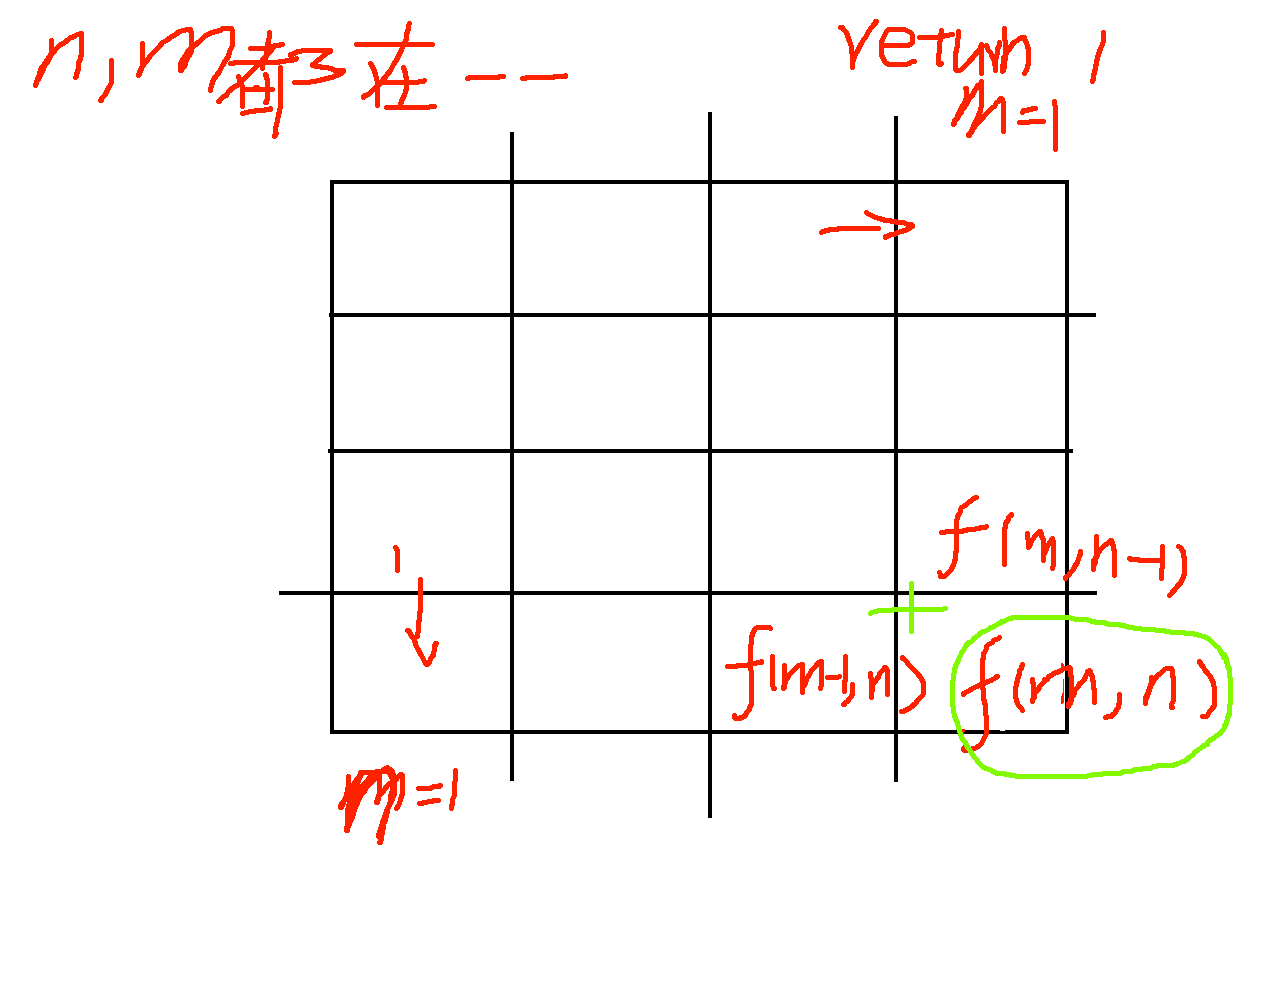 n, m都了在 -- 
return 1
m=1
1
f(m,n-1)
f(m-1,n)
+
f(m, n)
m=1